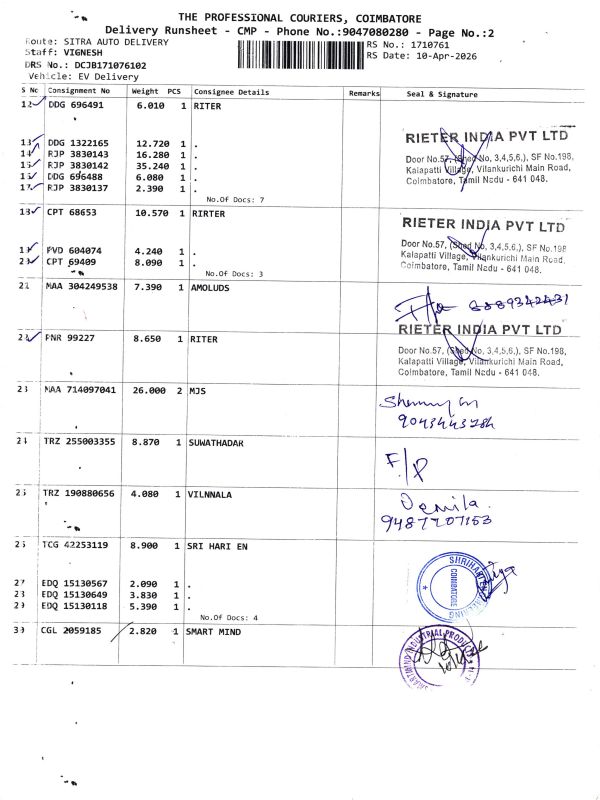 THE PROFESSIONAL COURIERS, COIMBATORE
Delivery Runsheet - CMP - Phone No.:9047080280 - Page No.:2
Route: SITRA AUTO DELIVERY
RS No.: 1710761
Staff: VIGNESH
RS Date: 10-Apr-2026
DRS No.: DCJB171076102
Vehicle: EV Delivery
S No Consignment No Weight PCS Consignee Details Remarks Seal & Signature
12 DDG 696491 6.010 1 RITER
RIETER INDIA PVT LTD
Door No.57, (Shed No, 3,4,5,6,), SF No.198,
Kalapatti Village, Vilankurichi Main Road,
Coimbatore, Tamil Nadu - 641 048.
13 DDG 1322165 12.720 1 .
14 RJP 3830143 16.280 1 .
15 RJP 3830142 35.240 1 .
16 DDG 696488 6.080 1 .
17 RJP 3830137 2.390 1 .
No.Of Docs: 7
18 CPT 68653 10.570 1 RIRTER
RIETER INDIA PVT LTD
Door No.57, (Shed No, 3,4,5,6,), SF No.198
Kalapatti Village, Vilankurichi Main Road,
Coimbatore, Tamil Nadu - 641 048.
19 PVD 604074 4.240 1 .
20 CPT 69409 8.090 1 .
No.Of Docs: 3
21 MAA 304249538 7.390 1 AMOLUDS
8889342431
22 PNR 99227 8.650 1 RITER
RIETER INDIA PVT LTD
Door No.57, (Shed No, 3,4,5,6,), SF No.198,
Kalapatti Village, Vilankurichi Main Road,
Coimbatore, Tamil Nadu - 641 048.
23 MAA 714097041 26.000 2 MJS
24 TRZ 255003355 8.870 1 SUWATHADAR
F/P
25 TRZ 190880656 4.080 1 VILNNALA
9487707153
26 TCG 42253119 8.900 1 SRI HARI EN
COIMBATORE
27 EDQ 15130567 2.090 1 .
28 EDQ 15130649 3.830 1 .
29 EDQ 15130118 5.390 1 .
No.Of Docs: 4
30 CGL 2059185 2.820 1 SMART MIND